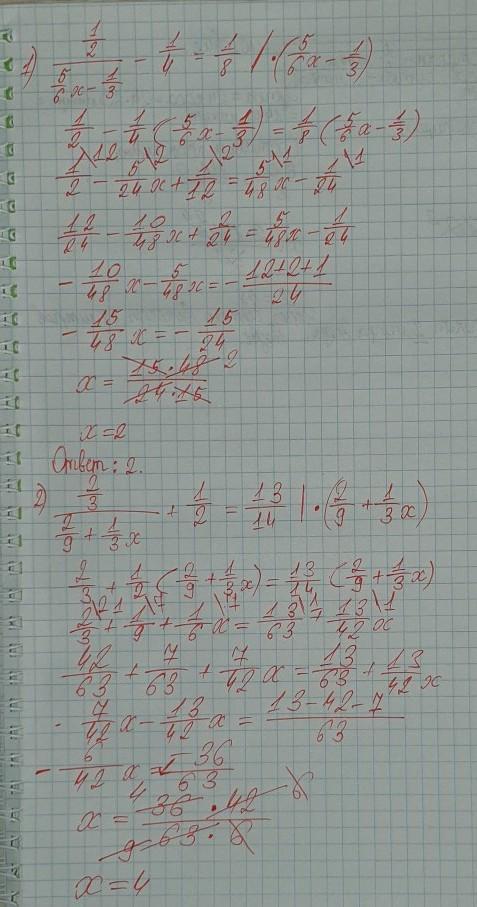 1) (1/2)/(5/6 x - 1/3) - 1/4 = 1/8 | · (5/6 x - 1/3)
1/2 - 1/4 (5/6 x - 1/3) = 1/8 (5/6 x - 1/3)
1/2 \12 - 5/24 x \2 + 1/12 \2 = 5/48 x \1 - 1/24 \1
12/24 - 10/48 x + 2/24 = 5/48 x - 1/24
- 10/48 x - 5/48 x = - (12+2+1)/24
- 15/48 x = - 15/24
x = (15 · 48)/(24 · 15) 2
x = 2
Ответ: 2.
2) (2/3)/(2/9 + 1/3 x) + 1/2 = 13/14 | · (2/9 + 1/3 x)
2/3 + 1/2 (2/9 + 1/3 x) = 13/14 (2/9 + 1/3 x)
2/3 \21 + 1/9 \7 + 1/6 x \7 = 13/63 \1 + 13/42 x \1
42/63 + 7/63 + 7/42 x = 13/63 + 13/42 x
7/42 x - 13/42 x = (13 - 42 - 7)/63
- 6/42 x = -36/63
x = (4 36 · 42 6)/(9 63 · 6)
x = 4